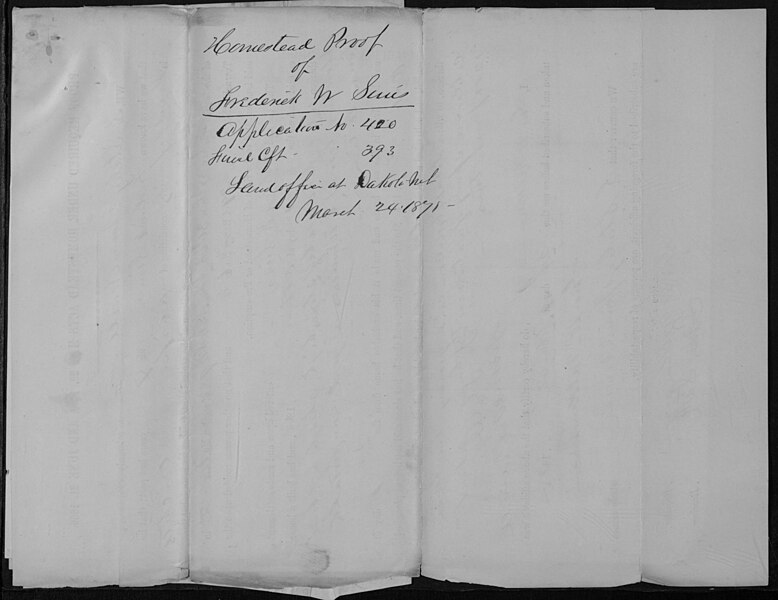 Homestead Proof
of
Frederick W
Application No. 420
Final Cft - 393
Land office at Dakota
March 24. 1871 -